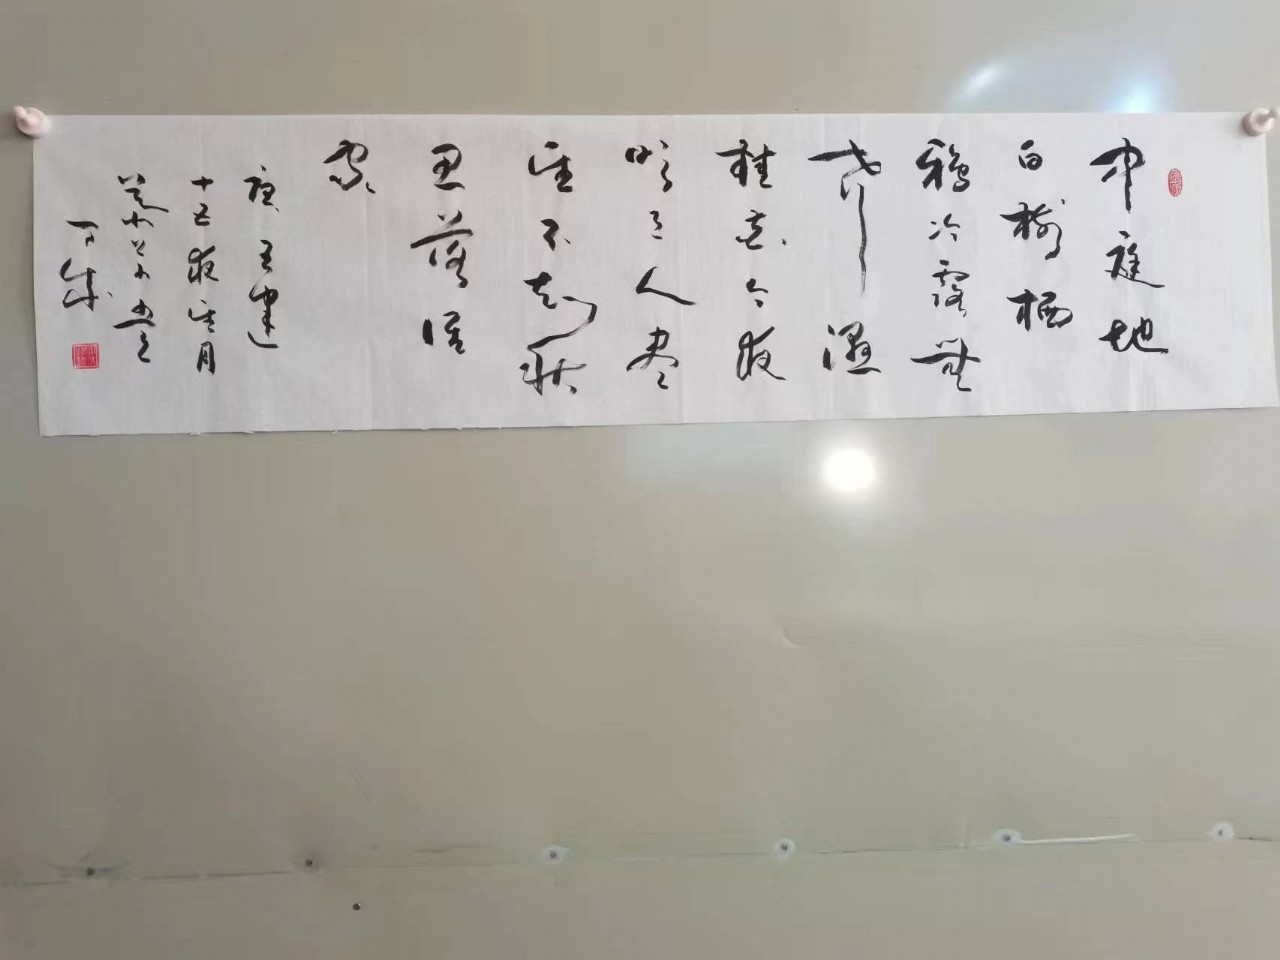 中庭地
白樹栖
鴉冷露無
聲湿
桂花今夜
明月人尽
望不知秋
思落谁
家
唐王建
十五夜望月